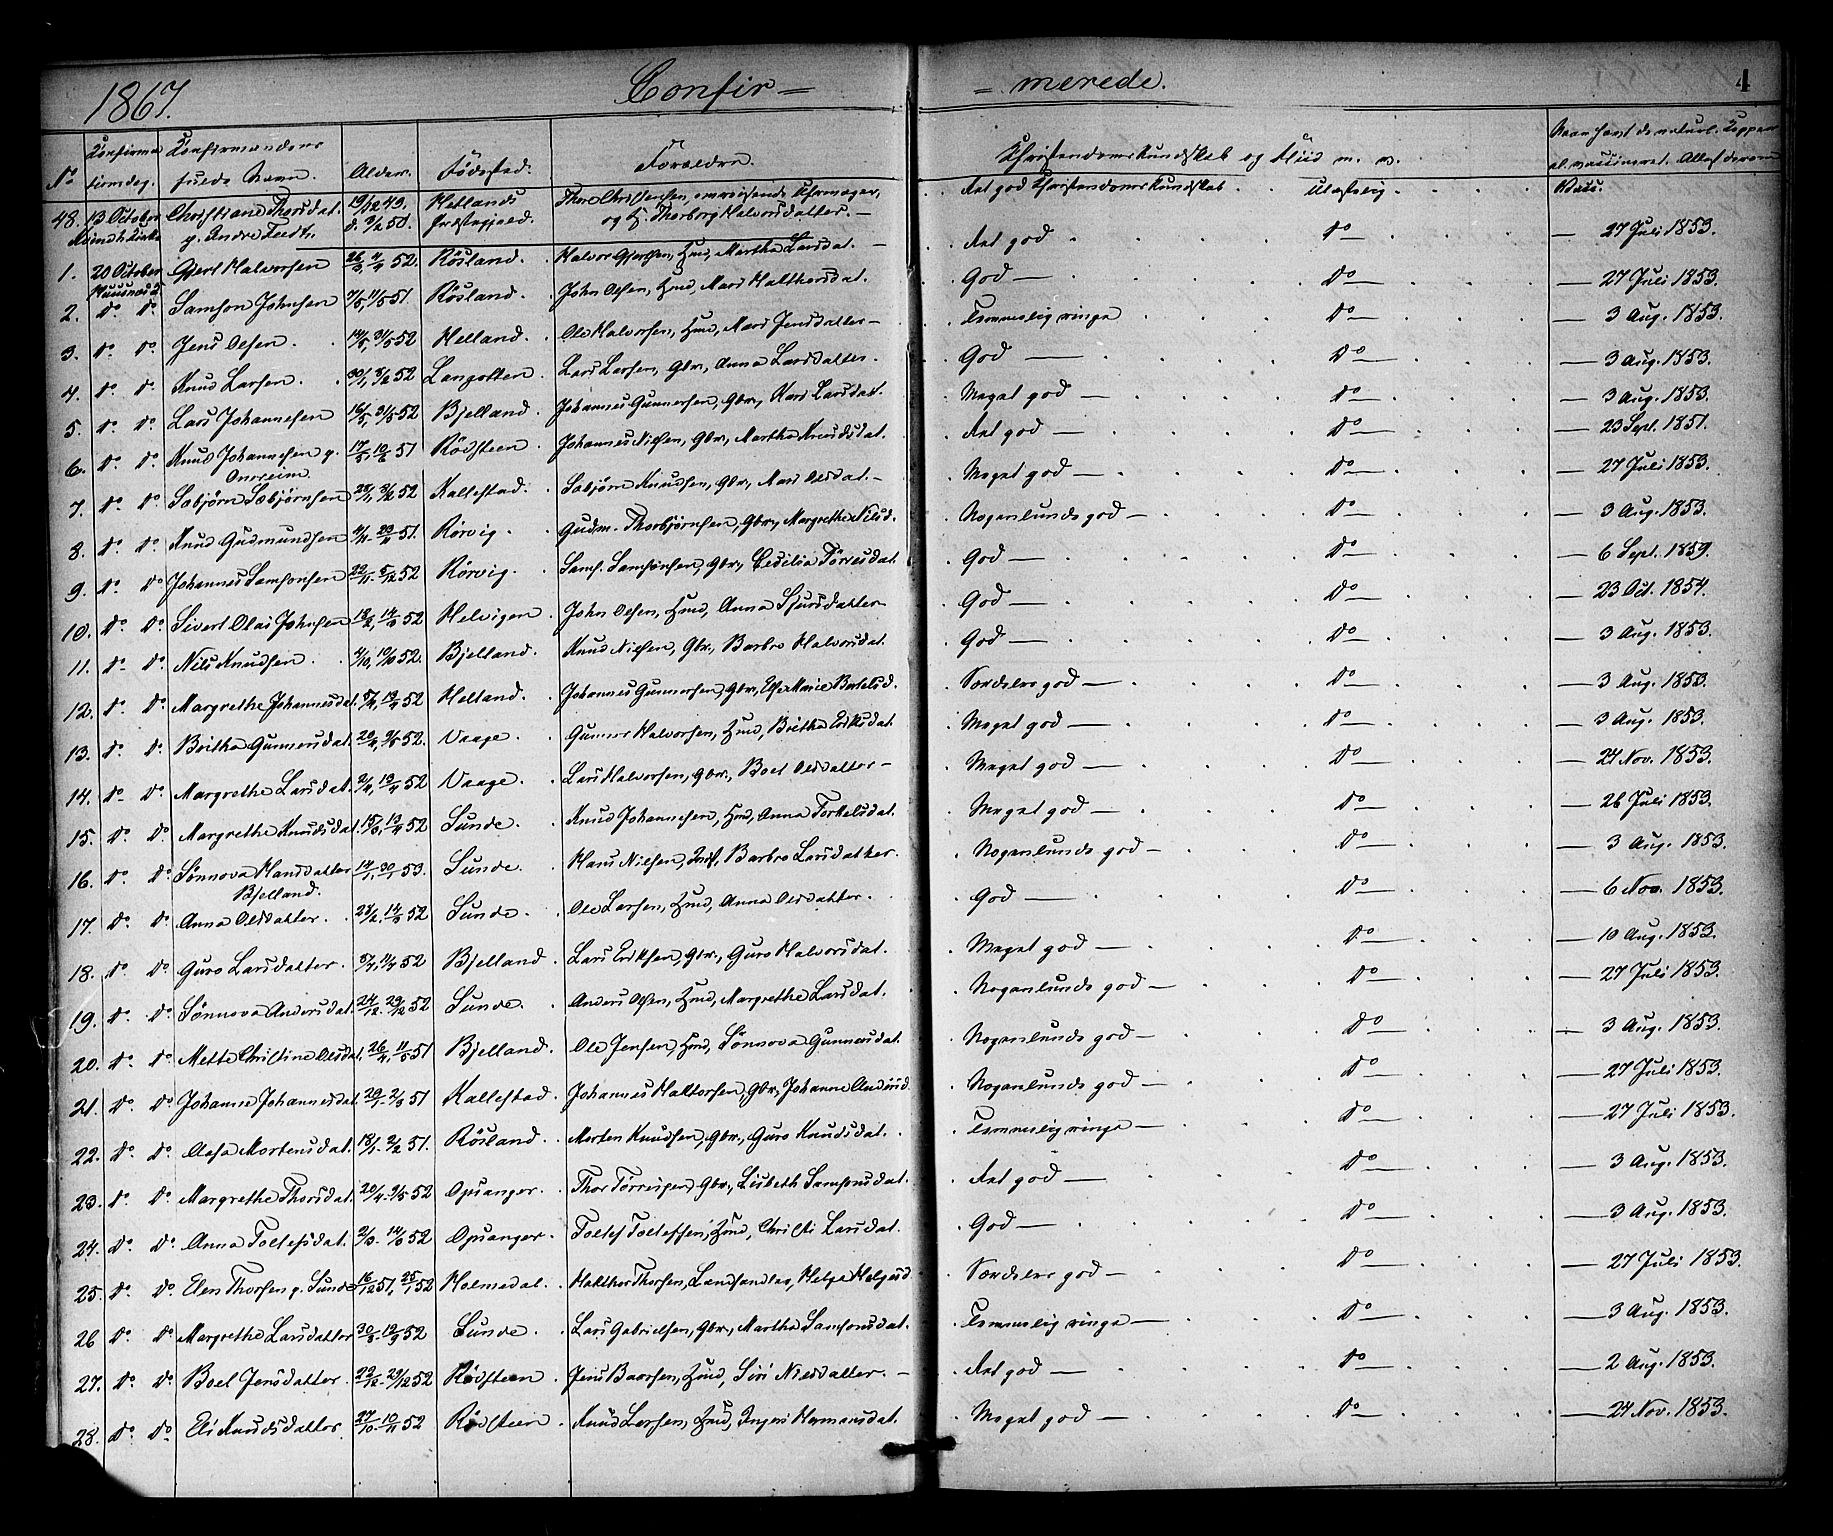 1867. Confir = = merede. 4
No Confirma Confirmandens Alder. Födested. Forældre. Christendomskundskab og Flid m. m. Naar havt de naturl. Kopper
tionsdag. fulde Navn. el. vaccineret. Attest derom
48. 13 October Christiane Thorsdat. 19/12 49. Hetlands Thore Christensen, omreisende og Thorborg Halvorsdatter. — Ret god Christendomskundskab ulastelig
d. 3/2 50. Præstegjeld.
1. 20 October Gjert Halvorsen 52. Røsland. Halvor Gjertsen, Hmd, Martha Larsdat. — Ret god Do — 27 Juli 1853.
2. Do Do Samson Johnsen 51. Røsland. John Olsen, Hmd, Mari Halthorsdat. God — Do — 27 Juli 1853.
3. Do Do Jens Olsen. 52 Helland. Ole Halvorsen, Hmd, Mari Jensdatter — Temmelig ringe Do — 3 Aug. 1853.
4. Do Do Knud Larsen. 30/1, 8/2 52 Langotten. Lars Larsen, Gbr., Anna Larsdatter. God — Do — 3 Aug. 1853.
5. Do Do Lars Johannesen 16/5, 31/5 52 Bjelland. Johannes Gunnarsen, Gbr., Kari Larsdat. Meget god Do — 3 Aug. 1853.
6. Do Do Knud Johannesen p. 51 Rødsteen. Johannes Nielsen, Gbr., Martha Knudsdat. Ret god Do — 23 Sept. 1851.
7. Do Do Sæbjørn Sæbjørnsen 52 Kallestad. Sæbjørn Knudsen, Gbr., Mari Olsdat. — Meget god — Do — 27 Juli 1853.
8. Do Do Knud Gudmundsen 51. Rørvig. Gudm. Thorbjørnsen, Gbr., Margrethe Nilsd. Nogenlunde god — Do — 3 Aug. 1853.
9. Do Do Johannes Samsonsen 52 Rørvig. Sams. Samsonsen, Gbr., Cecilia Tørresdat. God — Do — 6 Sept. 1859.
10. Do Do Sivert Olai Johnsen 52 Helvigen. John Olsen, Hmd, Anna Sjursdatter God — Do — 23 Oct. 1854.
11. Do Do Nils Knudsen. 52. Bjelland. Knud Nielsen, Gbr., Barbro Halvorsdat. God — Do — 3 Aug. 1853.
12. Do Do Margrethe Johannesdat. 52 Helland. Johannes Gunnarsen, Gbr., Else Marie Bertelsd. Særdeles god — Do — 3 Aug. 1853.
13. Do Do Britha Gunnersdat. 52. Vaage. Gunner Halvorsen, Hmd, Britha Eriksdat. Meget god — Do — 3 Aug. 1853.
14. Do Do Margrethe Larsdat. 52 Vaage. Lars Halvorsen, Gbr., Boel Olsdatter — Meget god — Do — 24 Nov. 1853.
15. Do Do Margrethe Knudsdat. 52 Sunde. Knud Johannesen, Hmd, Anna Torkelsdat. Meget god — Do — 26 Juli 1853.
16. Do Do Sønnova Hansdatter 53. Sunde. Hans Nielsen, Inds., Barbro Larsdatter. Nogenlunde god — Do — 3 Aug. 1853.
Bjelland.
17. Do Do Anna Olsdatter. 52 Sunde. Ole Larsen, Hmd, Anna Olsdatter. God — Do — 6 Nov. 1853.
18. Do Do Guro Larsdatter. 52 Bjelland. Lars Eriksen, Gbr., Guro Halvorsdat. Meget god — Do — 10 Aug. 1853.
19. Do Do Sønnova Andersdat. 24/12. 29/12 52 Sunde. Anders Olsen, Hmd, Margrethe Larsdat. Nogenlunde god — Do — 27 Juli 1853.
20. Do Do Mette Christine Olsdat. 51 Bjelland. Ole Jensen, Hmd, Sønnova Gunnersdat. Nogenlunde god — Do — 3 Aug. 1853.
21. Do Do Johanne Johannesdat. 51 Kallestad. Johannes Halthorsen, Gbr., Johanne Andersd. Nogenlunde god — Do — 27 Juli 1853.
22. Do Do Aasa Mortensdat. 18/1. 2/2 51. Røsland. Morten Knudsen, Gbr., Guro Knudsdat. Temmelig ringe — Do — 27 Juli 1853.
23. Do Do Margrethe Thorsdat. 52 Opsanger. Thor Tørresen, Gbr., Lisbeth Samsonsdat. Ret god — Do — 3 Aug. 1853.
24. Do Do Anna Tollefsdat. 52 Opsanger. Tollef Tollefsen, Hmd, Christi Larsdat. God — Do — 3 Aug. 1853.
25. Do Do Elen Thorsen p. Sunde 16/12 51, 52 Holmedal. Halthor Thorsen, Landhandler, Helga Helgesd. Særdeles god — Do — 27 Juli 1853.
26 Do Do Margrethe Larsdatter 52 Sunde. Lars Gabrielsen, Gbr., Martha Samsonsdat. Temmelig ringe — Do — 3 Aug. 1853.
27. Do Do Boel Jensdatter. 22/12. 29/12 52 Rødsteen Jens Baarsen, Hmd, Siri Nilsdatter. — Ret god — Do — 2 Aug. 1853.
28. Do Do Eli Knudsdatter. 52 Rødsteen. Knud Larsen, Hmd, Ingeri Hermansdat. Meget god — Do — 24 Nov. 1853.